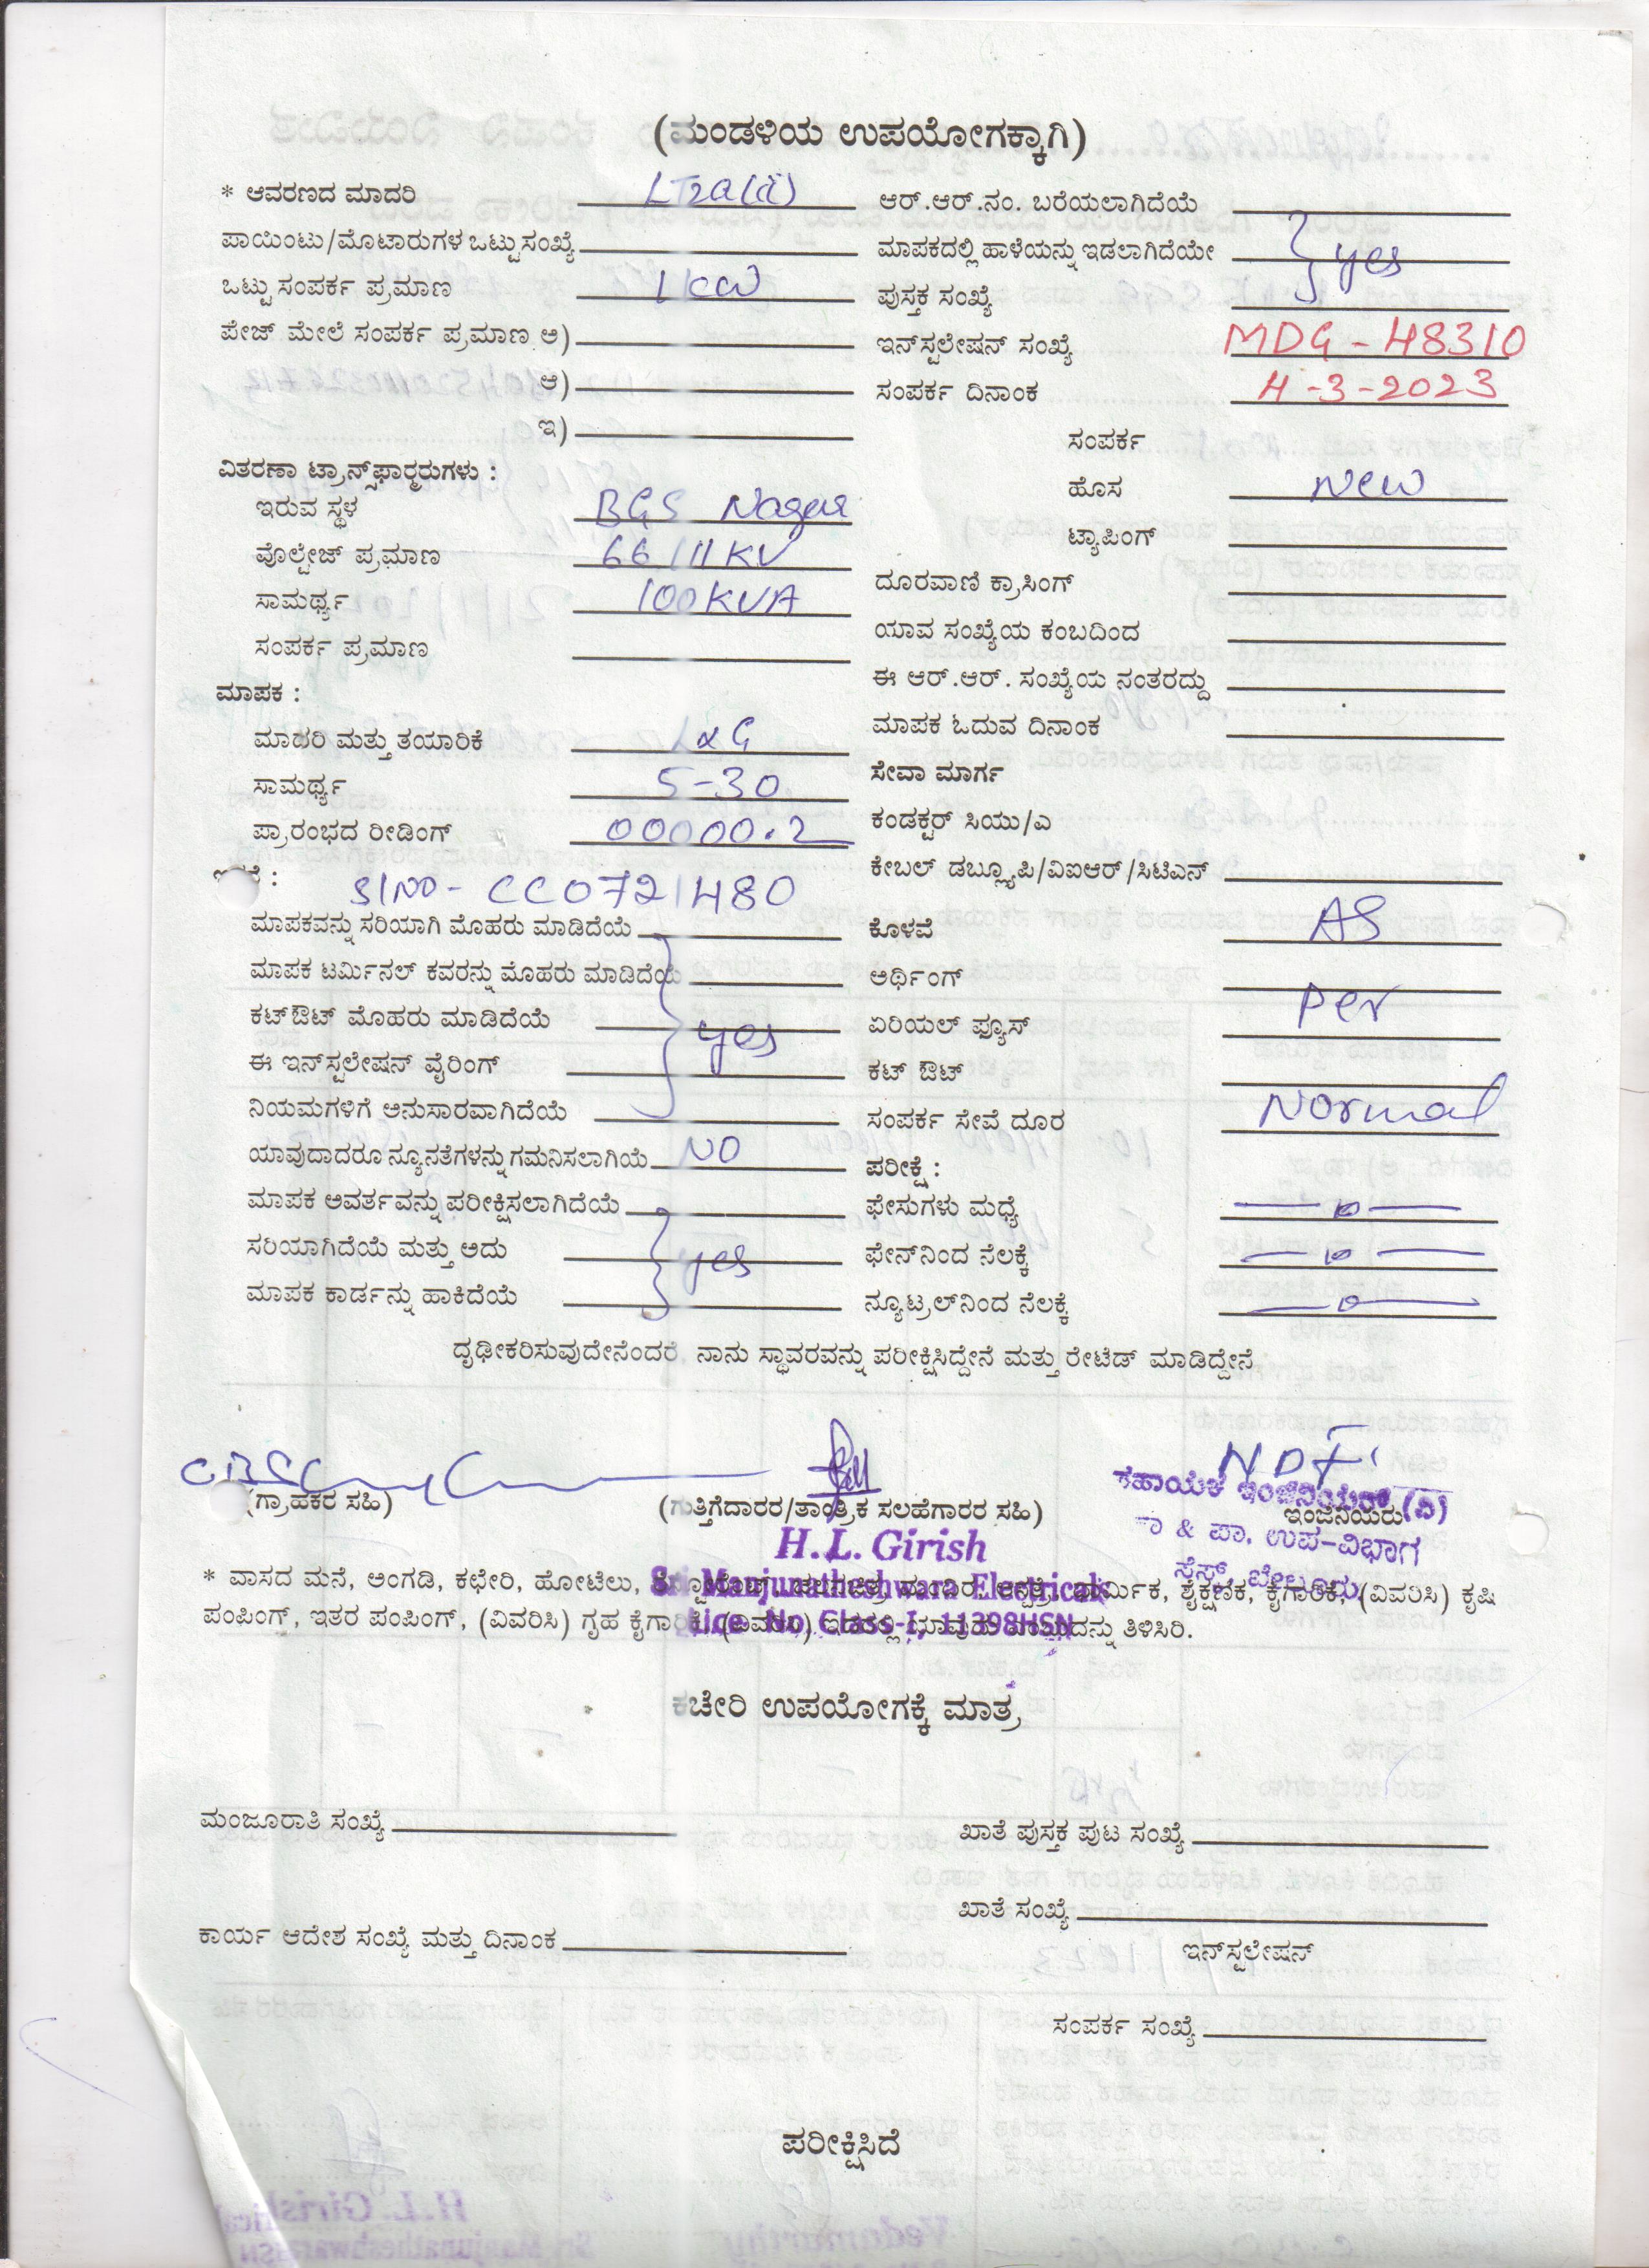 (ಮಂಡಳಿಯ ಉಪಯೋಗಕ್ಕಾಗಿ)
* ಆವರಣದ ಮಾದರಿ LT2a(ii)
ಪಾಯಿಂಟು/ಮೊಟಾರುಗಳ ಒಟ್ಟು ಸಂಖ್ಯೆ
ಒಟ್ಟು ಸಂಪರ್ಕ ಪ್ರಮಾಣ 1 KW
ಪೇಜ್ ಮೇಲೆ ಸಂಪರ್ಕ ಪ್ರಮಾಣ ಅ)
ಆ)
ಇ)
ವಿತರಣಾ ಟ್ರಾನ್ಸ್‌ಫಾರ್‍ಮರುಗಳು :
ಇರುವ ಸ್ಥಳ BGS Nagar
ವೊಲ್ಟೇಜ್ ಪ್ರಮಾಣ 66/11 KV
ಸಾಮರ್ಥ್ಯ 100 KVA
ಸಂಪರ್ಕ ಪ್ರಮಾಣ
ಮಾಪಕ :
ಮಾದರಿ ಮತ್ತು ತಯಾರಿಕೆ L&G
ಸಾಮರ್ಥ್ಯ 5-30
ಪ್ರಾರಂಭದ ರೀಡಿಂಗ್ 00000.2
Sl NO - CC0721480
ಮಾಪಕವನ್ನು ಸರಿಯಾಗಿ ಮೊಹರು ಮಾಡಿದೆಯೆ
ಮಾಪಕ ಟರ್ಮಿನಲ್ ಕವರನ್ನು ಮೊಹರು ಮಾಡಿದೆಯೆ
ಕಟ್‌ಔಟ್ ಮೊಹರು ಮಾಡಿದೆಯೆ yes
ಈ ಇನ್‌ಸ್ಟಲೇಷನ್ ವೈರಿಂಗ್
ನಿಯಮಗಳಿಗೆ ಅನುಸಾರವಾಗಿದೆಯೆ
ಯಾವುದಾದರೂ ನ್ಯೂನತೆಗಳನ್ನು ಗಮನಿಸಲಾಗಿಯೆ NO
ಮಾಪಕ ಅವರ್ತವನ್ನು ಪರೀಕ್ಷಿಸಲಾಗಿದೆಯೆ
ಸರಿಯಾಗಿದೆಯೆ ಮತ್ತು ಅದು yes
ಮಾಪಕ ಕಾರ್ಡನ್ನು ಹಾಕಿದೆಯೆ
ಆರ್.ಆರ್.ನಂ. ಬರೆಯಲಾಗಿದೆಯೆ
ಮಾಪಕದಲ್ಲಿ ಹಾಳೆಯನ್ನು ಇಡಲಾಗಿದೆಯೇ yes
ಪುಸ್ತಕ ಸಂಖ್ಯೆ
ಇನ್‌ಸ್ಟಲೇಷನ್ ಸಂಖ್ಯೆ MDG - 48310
ಸಂಪರ್ಕ ದಿನಾಂಕ 4-3-2023
ಸಂಪರ್ಕ
ಹೊಸ New
ಟ್ಯಾಪಿಂಗ್
ದೂರವಾಣಿ ಕ್ರಾಸಿಂಗ್
ಯಾವ ಸಂಖ್ಯೆಯ ಕಂಬದಿಂದ
ಈ ಆರ್.ಆರ್. ಸಂಖ್ಯೆಯ ನಂತರದ್ದು
ಮಾಪಕ ಓದುವ ದಿನಾಂಕ
ಸೇವಾ ಮಾರ್ಗ
ಕಂಡಕ್ಟರ್ ಸಿಯು/ಎ
ಕೇಬಲ್ ಡಬ್ಲ್ಯೂಪಿ/ವಿಐಆರ್/ಸಿಟಿಎನ್
ಕೊಳವೆ AS
ಅರ್ಥಿಂಗ್
ಏರಿಯಲ್ ಫ್ಯೂಸ್ Per
ಕಟ್ ಔಟ್
ಸಂಪರ್ಕ ಸೇವೆ ದೂರ Normal
ಪರೀಕ್ಷೆ :
ಫೇಸುಗಳು ಮಧ್ಯೆ
ಫೇನ್‌ನಿಂದ ನೆಲಕ್ಕೆ
ನ್ಯೂಟ್ರಲ್‌ನಿಂದ ನೆಲಕ್ಕೆ
ದೃಢೀಕರಿಸುವುದೇನೆಂದರೆ ನಾನು ಸ್ಥಾವರವನ್ನು ಪರೀಕ್ಷಿಸಿದ್ದೇನೆ ಮತ್ತು ರೇಟೆಡ್ ಮಾಡಿದ್ದೇನೆ
(ಗ್ರಾಹಕರ ಸಹಿ)
(ಗುತ್ತಿಗೆದಾರರ/ತಾಂತ್ರಿಕ ಸಲಹೆಗಾರರ ಸಹಿ)
ಸಹಾಯಕ ಇಂಜಿನಿಯರ್ (ವಿ)
ಇಂಜಿನಿಯರು
ಕಾ & ಪಾ. ಉಪ-ವಿಭಾಗ
ಸೆಸ್ಕ್, ಬೇಲೂರು.
H.L. Girish
Sri Manjunatheshwara Electricals
Lice. No. Class-I, 11398HSN
* ವಾಸದ ಮನೆ, ಅಂಗಡಿ, ಕಛೇರಿ, ಹೋಟೆಲು, ಶೈಕ್ಷಣಿಕ, ಕೈಗಾರಿಕೆ, (ವಿವರಿಸಿ) ಕೃಷಿ
ಪಂಪಿಂಗ್, ಇತರ ಪಂಪಿಂಗ್, (ವಿವರಿಸಿ) ಗೃಹ ಕೈಗಾರಿಕೆ ತಿಳಿಸಿರಿ.
ಕಚೇರಿ ಉಪಯೋಗಕ್ಕೆ ಮಾತ್ರ
ಮಂಜೂರಾತಿ ಸಂಖ್ಯೆ
ಖಾತೆ ಪುಸ್ತಕ ಪುಟ ಸಂಖ್ಯೆ
ಖಾತೆ ಸಂಖ್ಯೆ
ಕಾರ್ಯ ಆದೇಶ ಸಂಖ್ಯೆ ಮತ್ತು ದಿನಾಂಕ
ಇನ್‌ಸ್ಟಲೇಷನ್
ಸಂಪರ್ಕ ಸಂಖ್ಯೆ
ಪರೀಕ್ಷಿಸಿದೆ